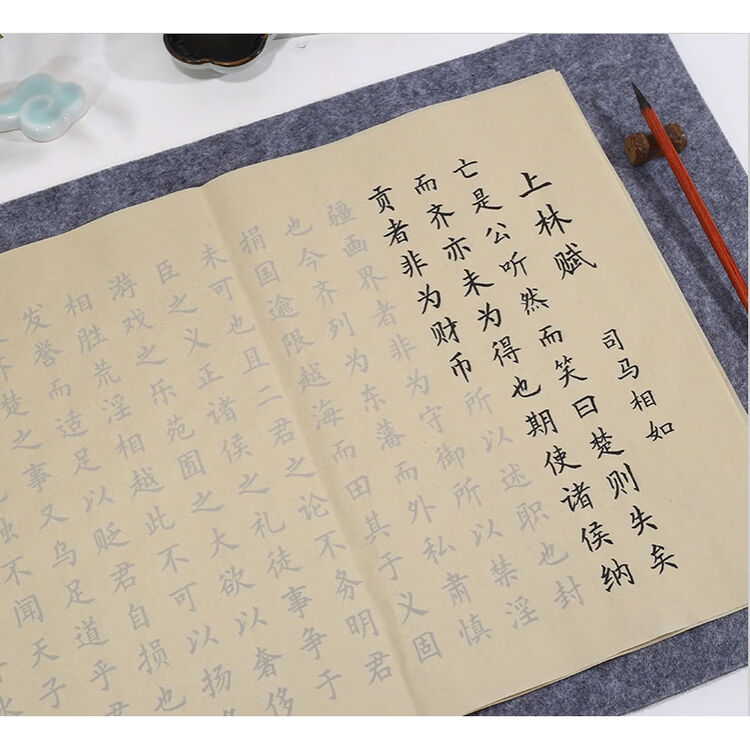 上林赋 司马相如
亡是公听然而笑曰楚则失矣
而齐亦未为得也期使诸侯纳
贡者非为财币所以述职也封
疆画界者非为守御所以禁淫
也今齐列为东藩而外私肃慎
捐国逾限越海而田其于义固
未可也且二君之论不务明君
臣之义正诸侯之礼徒事争于
游戏之乐苑囿之大欲以奢侈
相胜荒淫相越此不可以扬
发誉而适足以贬君自损也
楚之事又乌足道乎
不闻天子